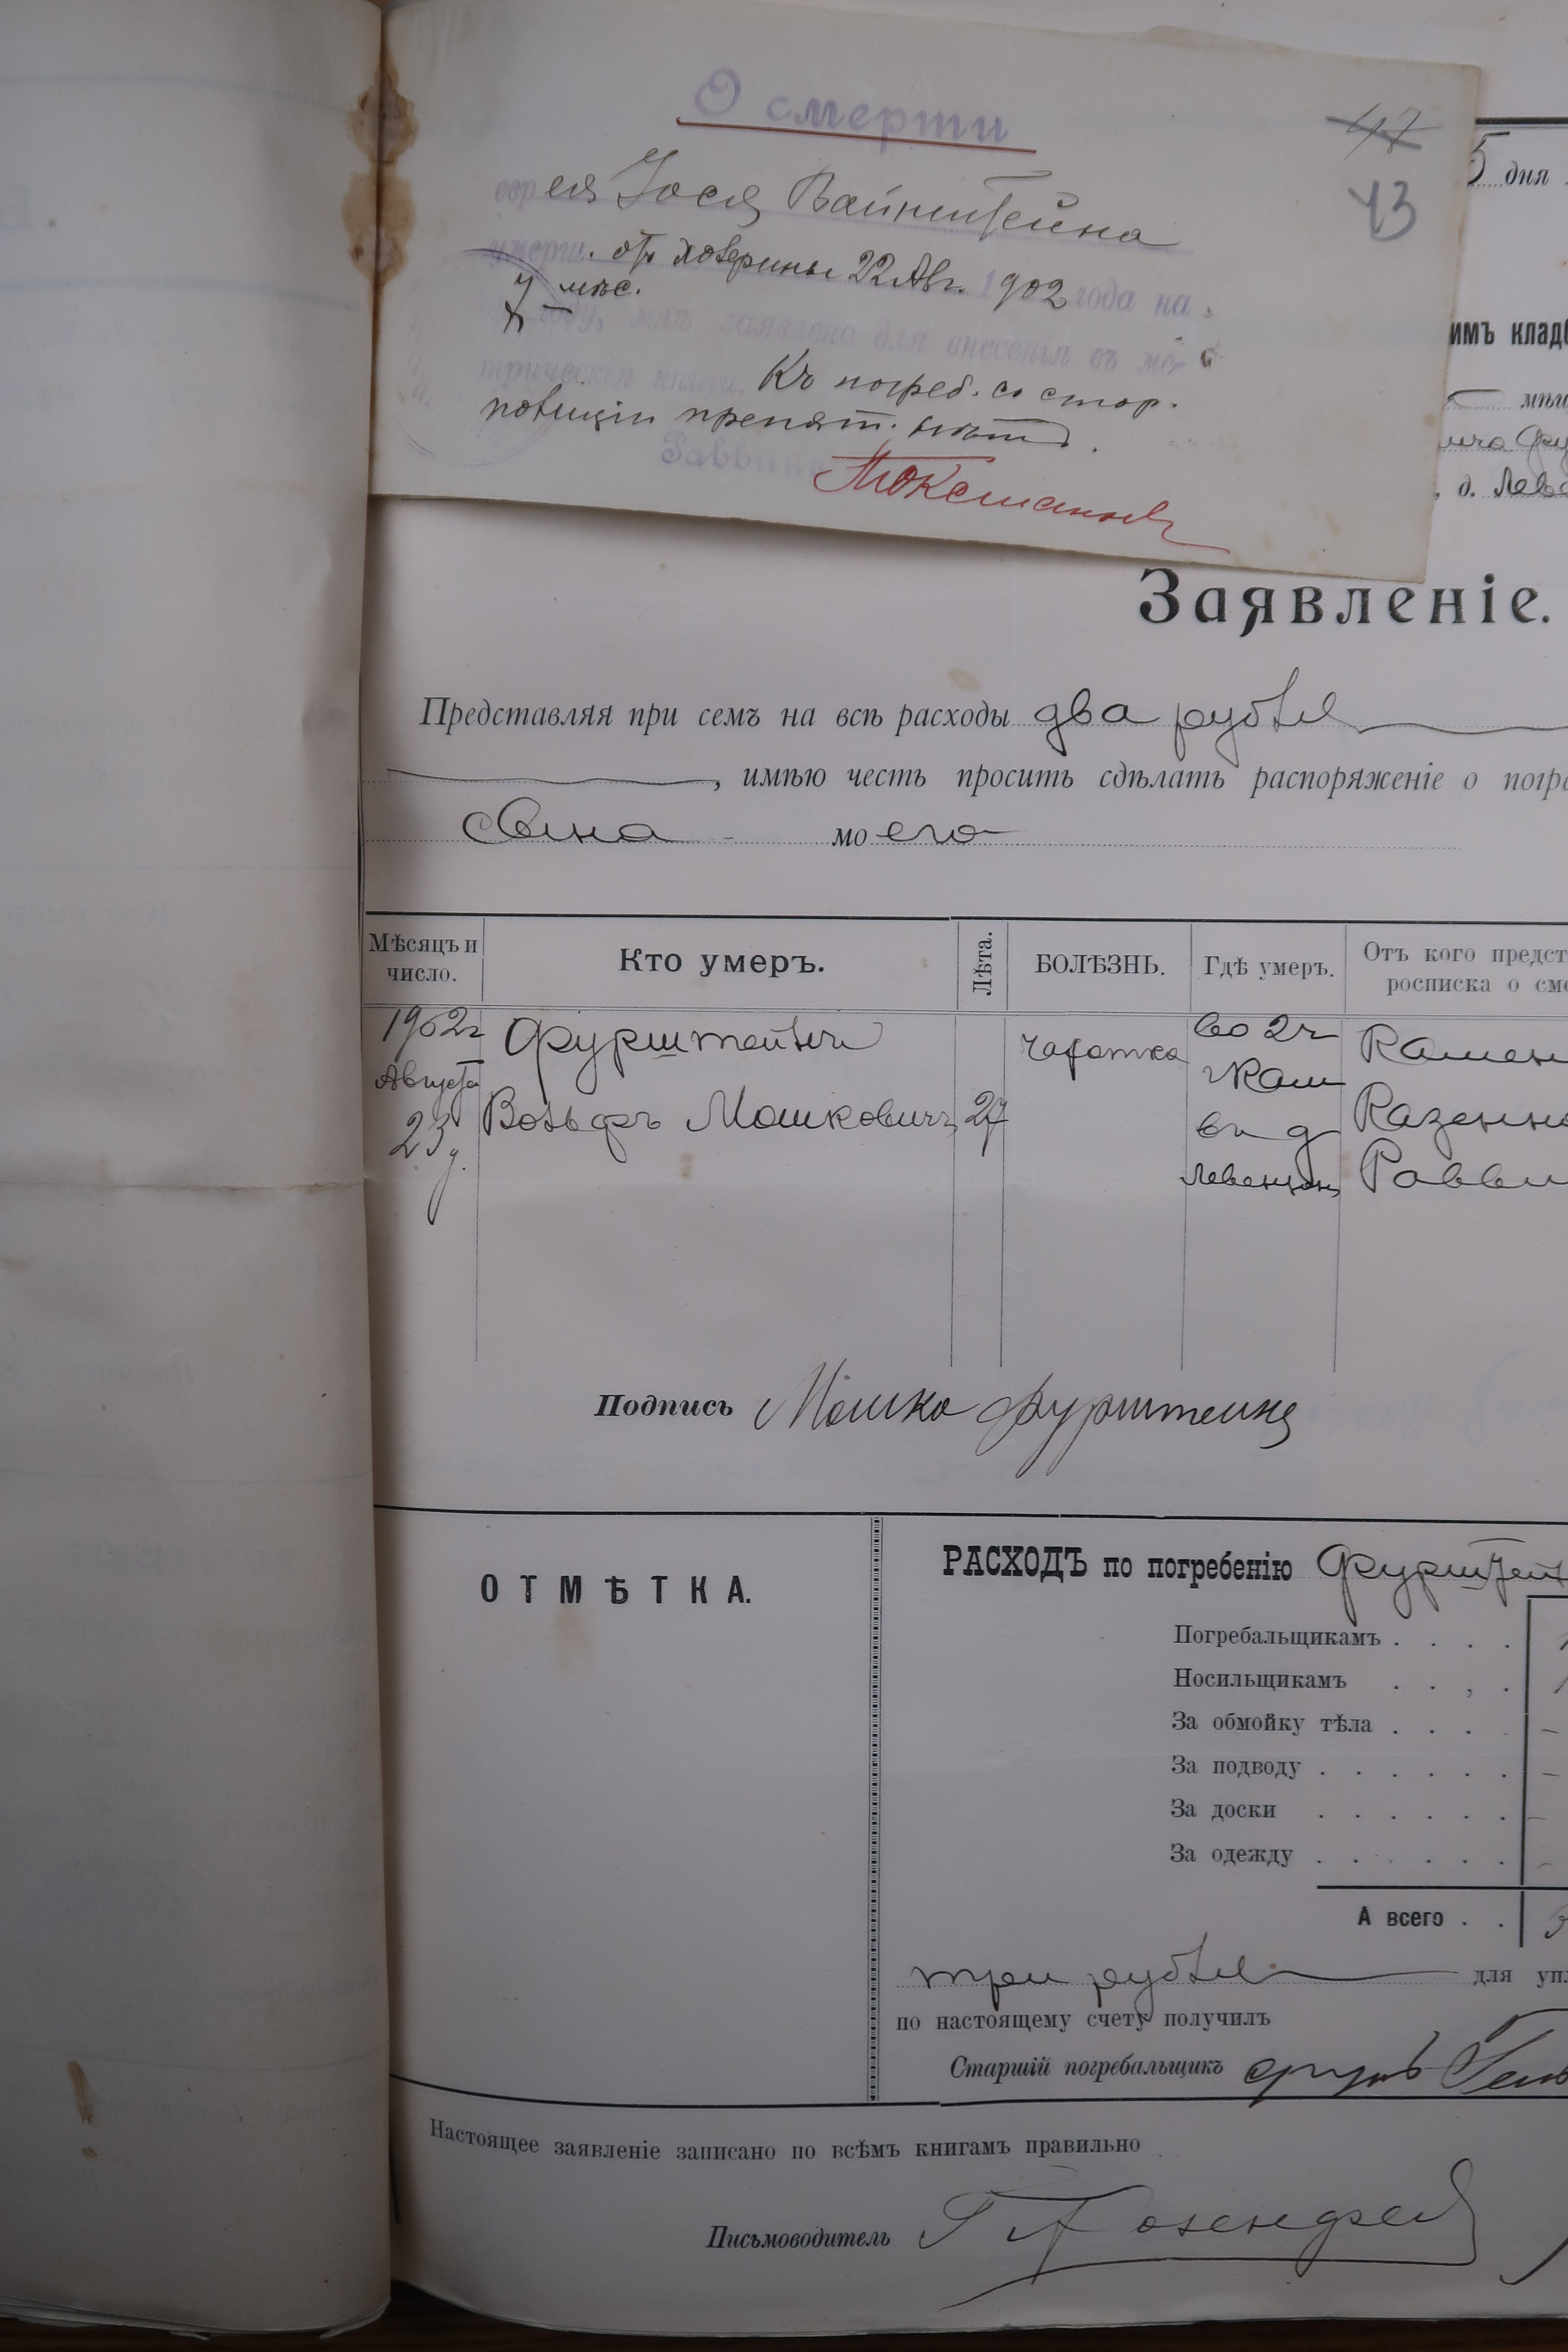 О смерти
47
43
еврея Іося Вайнштейна
умерш. отъ 22 Авг. 1902 года на
7 мѣс.
году, мнѣ заявлено для внесенія въ ме-
трическія книги. Къ погреб. со стор.
полиціи препят. нѣтъ.
Раввинъ
5 дня
имъ кладб
, д. Леве
Заявленіе.
Представляя при семъ на всѣ расходы два рубля
, имѣю честь просить сдѣлать распоряженіе о погре
сына моего
Мѣсяцъ и число.
Кто умеръ.
Лѣта.
БОЛѢЗНЬ.
Гдѣ умеръ.
Отъ кого предст
росписка о сме
1902 г Фурштейнъ чахотка во 2 ч Камен
Августа г Каш
23 д. Вольфъ Мошковичъ 27 въ д Казенна
Левензонъ Равви
Подпись Мошко Фурштейнъ
ОТМѢТКА.
РАСХОДЪ по погребенію Фурштей
Погребальщикамъ . . . . 1
Носильщикамъ . . , . 1
За обмойку тѣла . . . . –
За подводу . . . . . . –
За доски . . . . . . –
За одежду . . . . . . –
А всего . . 3
три рубля для упл
по настоящему счету получилъ
Старшій погребальщикъ
Настоящее заявленіе записано по всѣмъ книгамъ правильно
Письмоводитель